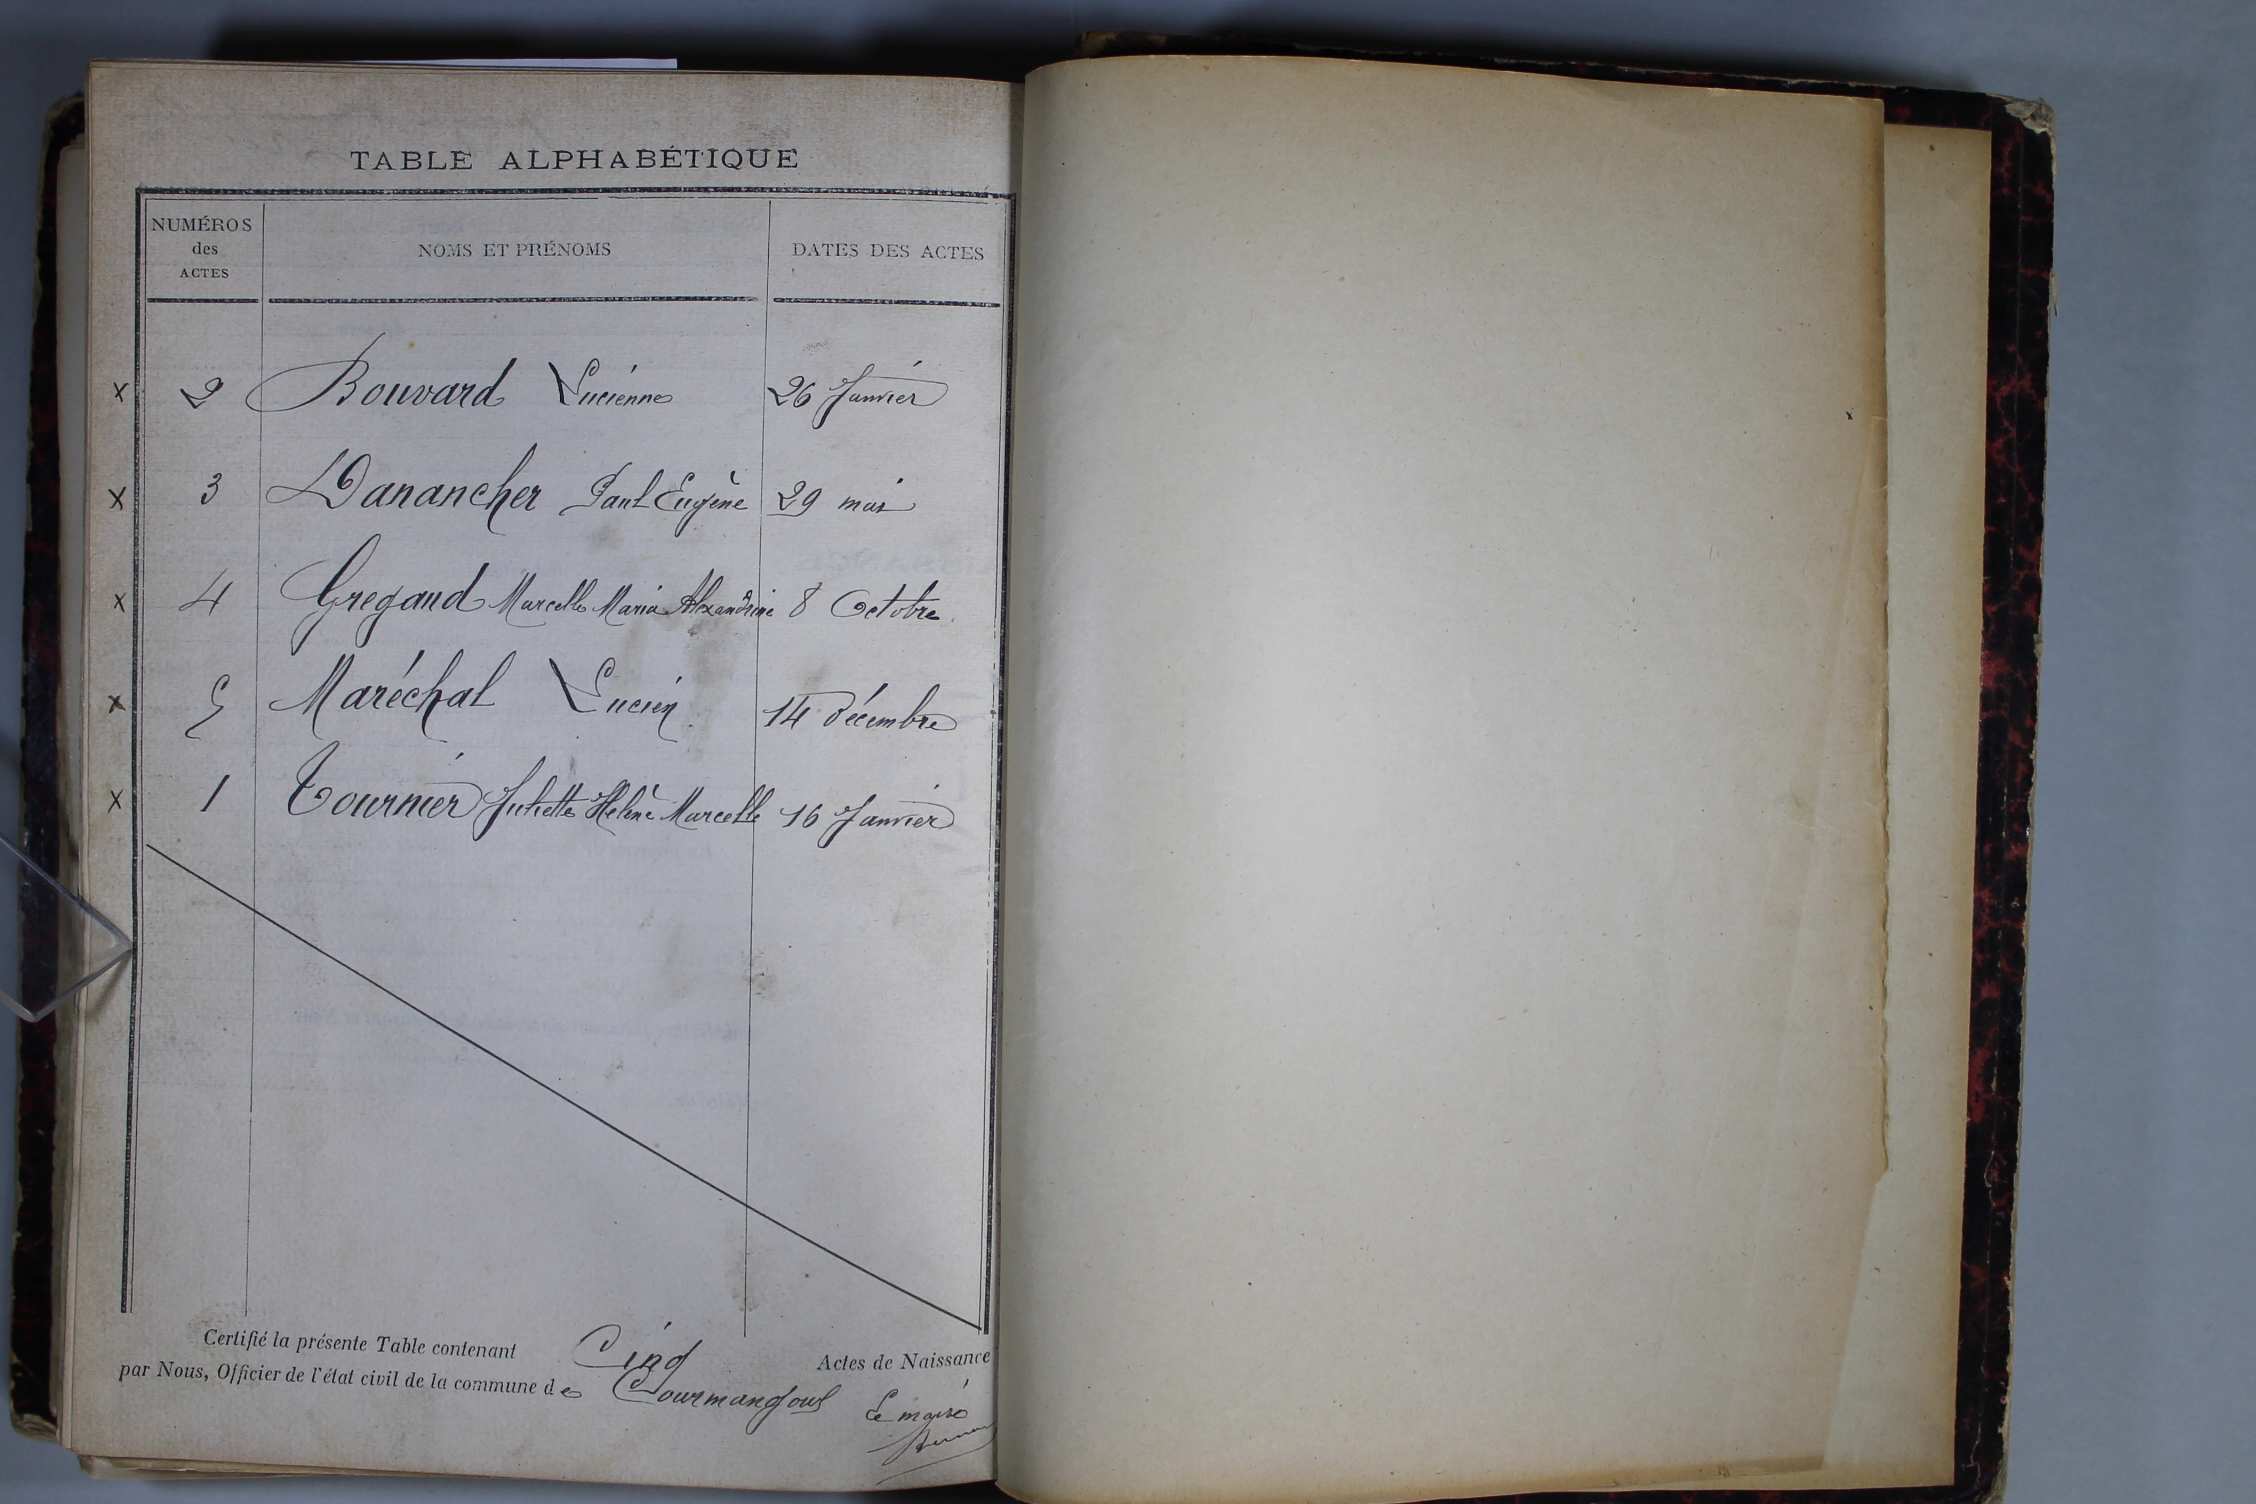 TABLE ALPHABÉTIQUE
NUMÉROS des ACTES NOMS ET PRÉNOMS DATES DES ACTES
x 2 Bouvard Lucienne 26 Janvier
x 3 Danancher Paul Eugène 29 mai
x 4 Gregaud Marcelle Maria Alexandrine 8 Octobre
x 5 Maréchal Lucien 14 décembre
x 1 Tournier Juliette Hélène Marcelle 16 Janvier
Certifié la présente Table contenant Cinq Actes de Naissance
par Nous, Officier de l'état civil de la commune de Courmangoux
Le maire